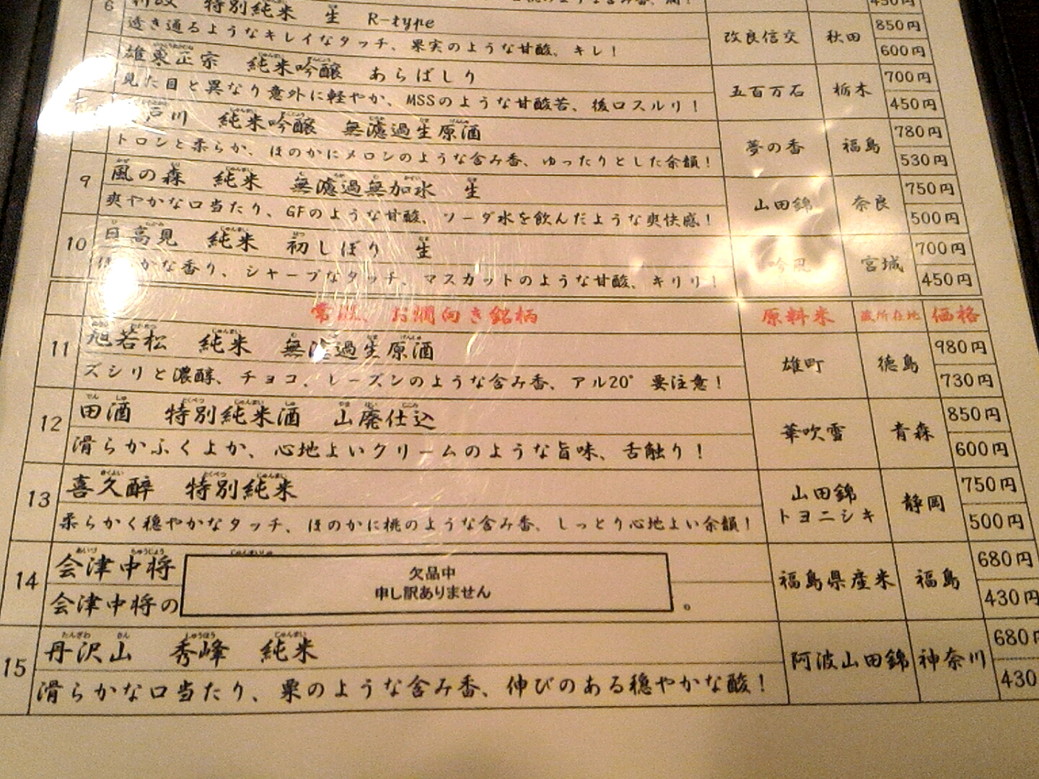 6 特別純米 生 R-type
透き通るようなキレイなタッチ、果実のような甘酸、キレ！
改良信交 秋田 850円 600円
雄東正宗 純米吟醸 あらばしり
見た目と異なり意外に軽やか、MSSのような甘酸苦、後口スルリ！
五百万石 栃木 700円 450円
戸川 純米吟醸 無濾過生原酒
トロンと柔らか、ほのかにメロンのような含み香、ゆったりとした余韻！
夢の香 福島 780円 530円
9 風の森 純米 無濾過無加水 生
爽やかな口当たり、GFのような甘酸、ソーダ水を飲んだような爽快感！
山田錦 奈良 750円 500円
10 日高見 純米 初しぼり 生
かな香り、シャープなタッチ、マスカットのような甘酸、キリリ！
吟風 宮城 700円 450円
お燗向き銘柄 原料米 蔵所在地 価格
11 旭若松 純米 無濾過生原酒
ズシリと濃醇、チョコ、レーズンのような含み香、アル20° 要注意！
雄町 徳島 980円 730円
12 田酒 特別純米酒 山廃仕込
滑らかふくよか、心地よいクリームのような旨味、舌触り！
華吹雪 青森 850円 600円
13 喜久醉 特別純米
柔らかく穏やかなタッチ、ほのかに桃のような含み香、しっとり心地よい余韻！
山田錦 トヨニシキ 静岡 750円 500円
14 会津中将
会津中将の
欠品中
申し訳ありません
福島県産米 福島 680円 430円
15 丹沢山 秀峰 純米
滑らかな口当たり、栗のような含み香、伸びのある穏やかな酸！
阿波山田錦 神奈川 680円 430